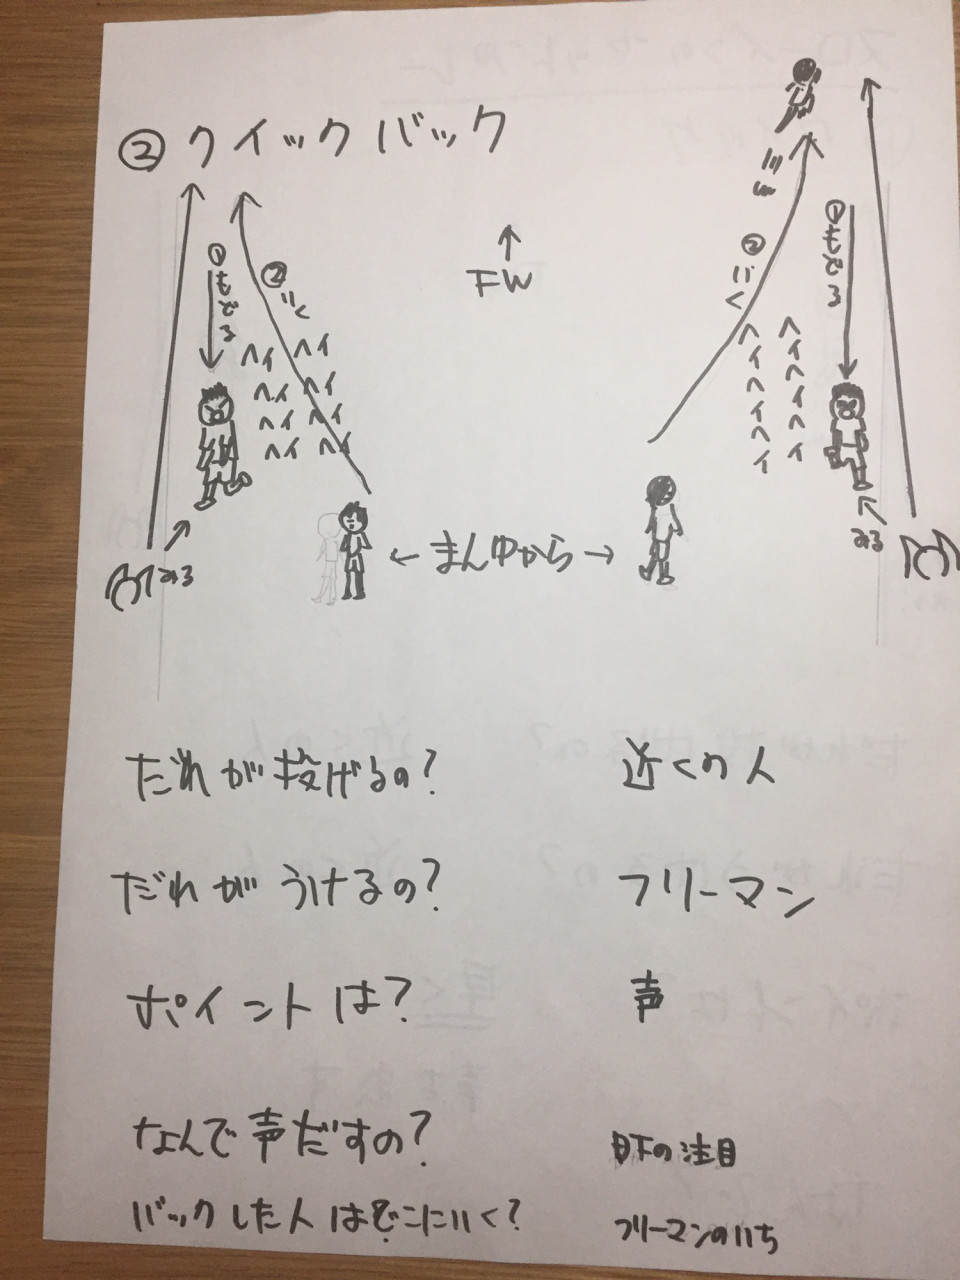 ② クイックバック
①もどる
②いく
ヘイ ヘイ
ヘイ ヘイ
ヘイ ヘイ
ヘイ ヘイ
みる
↑
FW
②いく
①もどる
ヘイヘイヘイ
ヘイヘイヘイ
みる
← まん中から →
だれが投げるの? 近くの人
だれがうけるの? フリーマン
ポイントは? 声
なんで声だすの? の注目
バックした人はどこにいく? フリーマンのいち